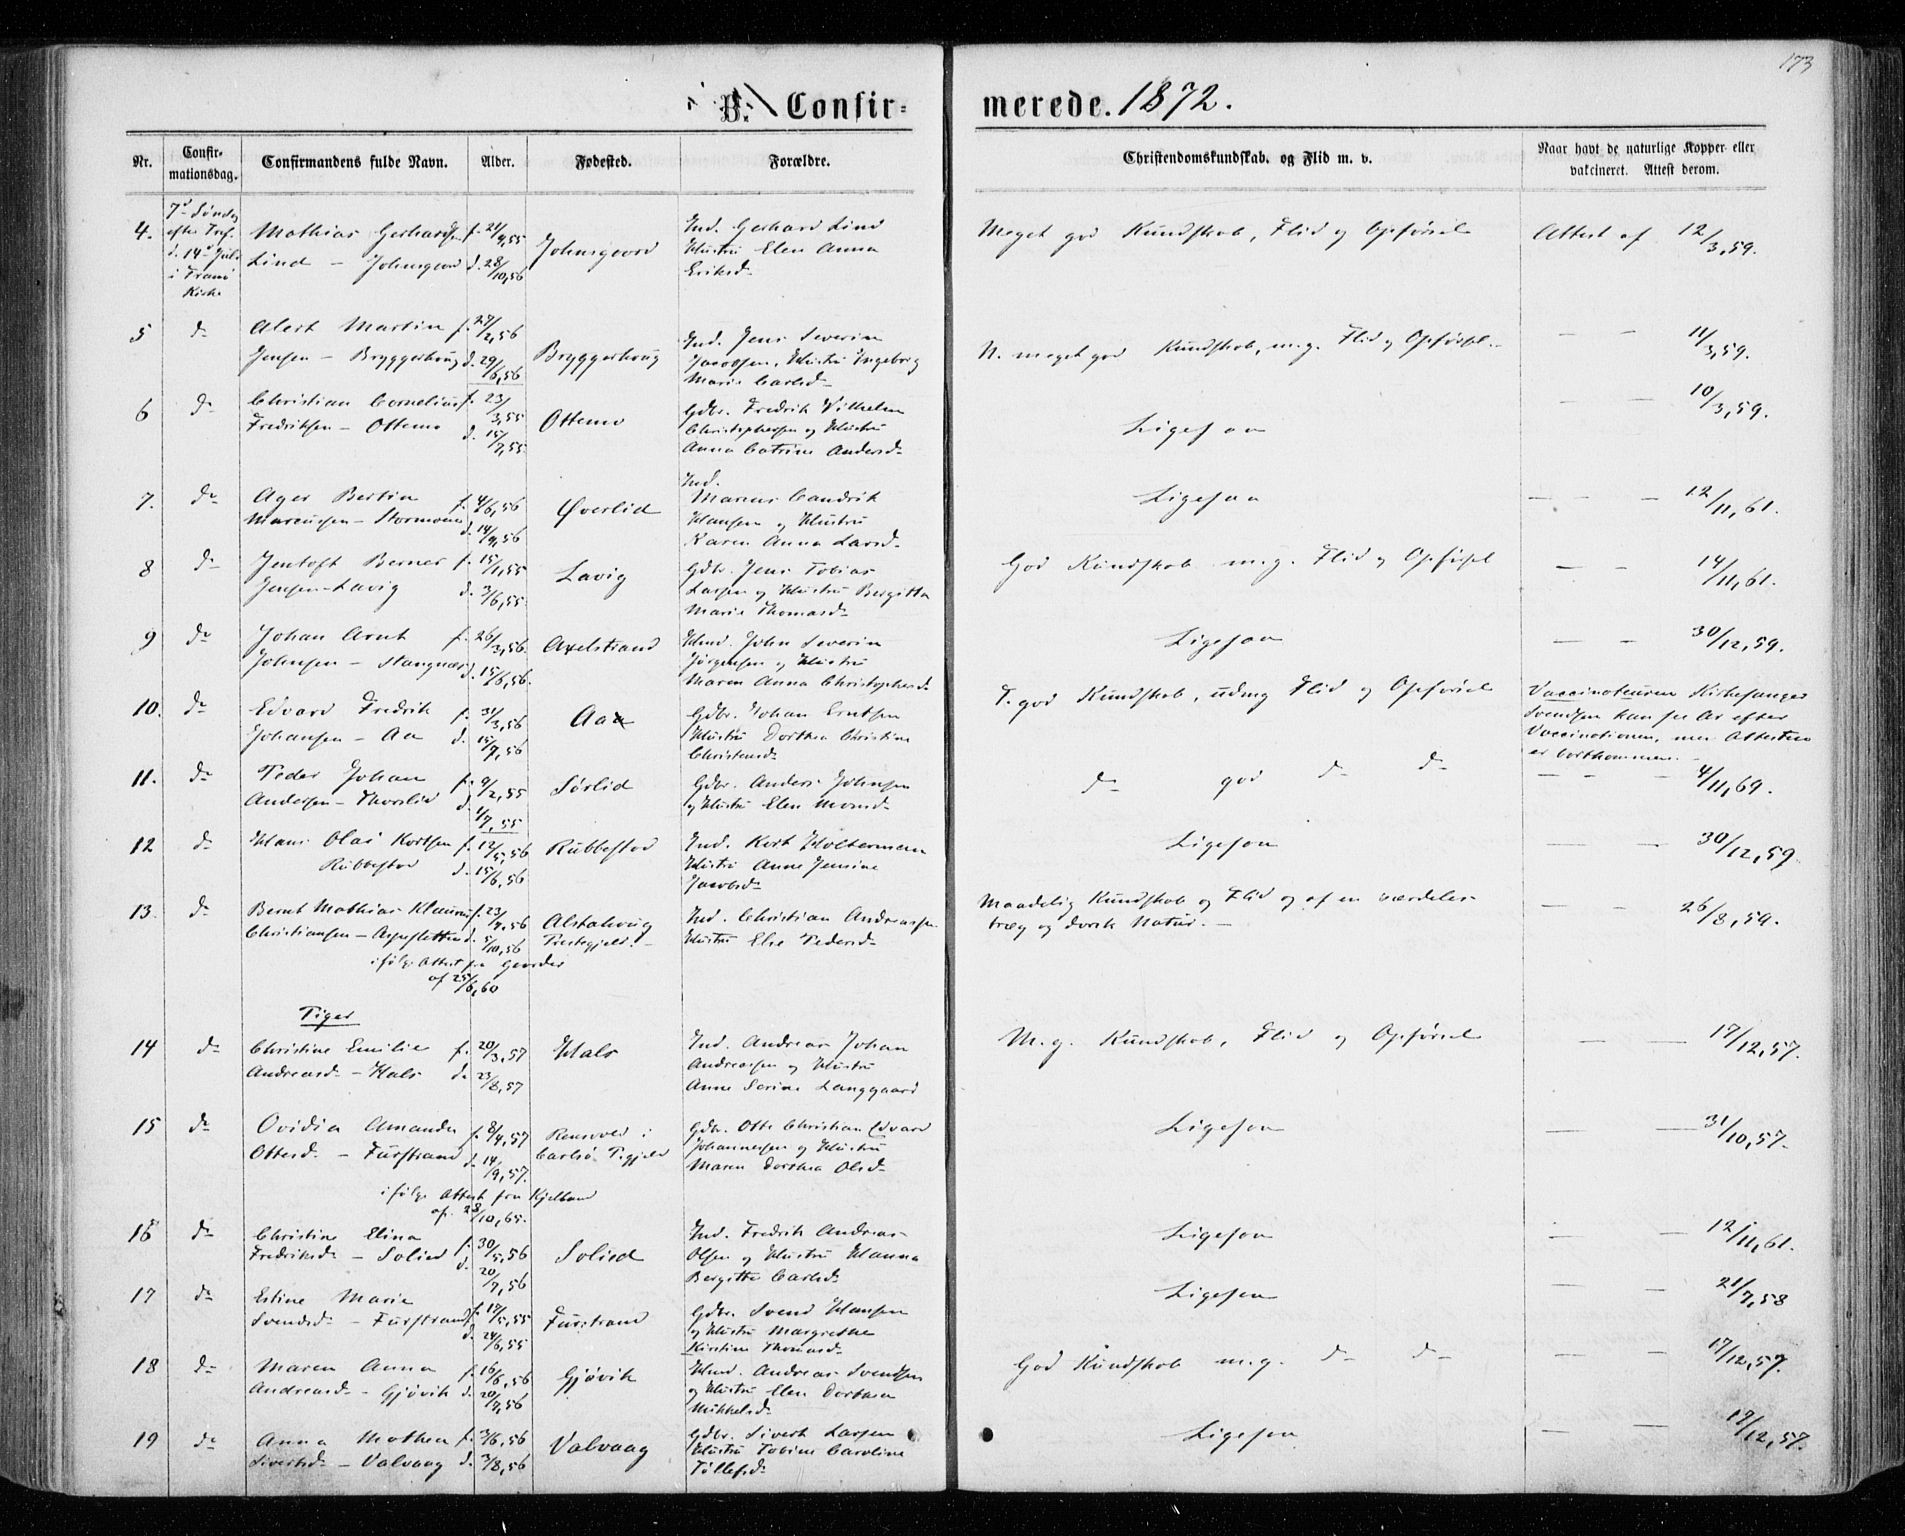 173
B. Confirmerede. 1872.
Nr.
Confirmationsdag.
Confirmandens fulde Navn.
Alder.
Fødested.
Forældre.
Christendomskundskab, og Flid m. v.
Naar havt de naturlige Kopper eller
vakcineret. Attest derom.
4.
7d Søndag
efter Tref.
d. 14d Juli
i Tranø
Kirke
Mathias Gerhardsen
Lind – Johnsgaard
f. 21/9,55
d. 28/10,56
Johnsgaard
Ind. Gerhard Lind
Hustru Elen Anna
Eriksd.
Meget god Kundskab, Flid og Opførsel
Attest af 12/3,59.
5
do
Alert Martin
Jensen – Bryggerhoug
f. 27/2,56
d. 29/6,56
Bryggerhoug
Ind. Jens Severin
Jacobsen, Hustru Ingeborg
Marie Carlsd.
N. meget god Kundskab, m.g. Flid og Opførsel.
– – 11/3,59.
6
do
Christian Cornelius
Fredriksen – Ottemo
f. 23/3,55
d. 15/7,55
Ottemo
Gdbr. Fredrik Vilhelm
Christophersen og Hustru
Anna Catrine Andersd.
Ligesaa
– – 10/3,59.
7.
do
Ager Bertin
Marcussen – Stormoen
f. 4/6,56
d. 14/9,56
Øverlid
Ind.
Marcus Candrik
Hansen og Hustru
Karen Anna Larsd.
Ligesaa
– – 12/11,61.
8
do
Jentoft Berner
Jensen – Lavig
f. 15/1,55
d. 3/6,55
Lavig
Gdbr. Jens Tobias
Larsen og Hustru Bergitta
Marie Thomasd.
God Kundskab m.g. Flid og Opførsel
– – 14/11,61.
9
do
Johan Arnt
Johnsen – Stangnæs
f. 26/3,56.
d. 15/6,56.
Axelstrand
Hmd. John Severin
Jørgensen og Hustru
Maren Anna Christophersd.
Ligesaa
– – 30/12,59.
10.
do
Edvard Fredrik
Johansen – Aa
f. 31/3,56
d. 15/7,56
Aa
Gdbr. Johan Erntsen
Hustru Dorthea Christine
Christensd.
T. god Kundskab, udmg Flid og Opførsel
Vaccinateuren Kirkesanger
Svendsen kan se Ar efter
Vaccinationen, men Attesten
er bortkommen.
11.
do
Peder Johan
Andersen – Thorslid
f. 9/2,55
d. 1/7,55
Sørlid
Gdbr. Anders Johnsen
og Hustru Elen Monsd.
do god do do
– – 4/11,69.
12
do
Hans Olai Kortsen
Rubbestad
f. 12/5,56
d. 15/6,56
Rubbestad
Ind. Kort Holterman
Hustru Anne Jensine
Jacobsd.
Ligesaa
– – 30/12,59.
13.
do
Bernt Mathias Klaurus
Christiansen –
f. 23/4,56
d. 5/10,56
ifølge Attest fra
af 25/6,60
Alstahoug
Præstegjeld. –
Ind. Christian Andreassen
Hustru Else Pedersd.
Maadelig Kundskab og Flid og af en særdeles
træg og dorsk Natur. –
– – 26/8,59.
Piger
14
do
Christine Emilie
Andreasd. – Hals
f. 20/3,57
d. 23/8,57
Hals
Ind. Andreas Johan
Andreassen og Hustru
Anne Serine Langgaard
M.g. Kundskab, Flid og Opførsel
– – 17/12,57.
15
do
Ovidia Amanda
Ottesd. – Furstrand
f. 8/4,57
d. 14/9,57.
ifølge Attest fra
af 28/10,65.
Rensvold i
Carlsø P.gjeld
Gdbr. Otte Christian Edvard
Johannesen og Hustru
Maren Dorthea Olsd.
Ligesaa
– – 31/10,57.
16
do
Christine Elina
Fredriksd. – Solied
f. 30/5,56
d. 20/7,56
Solied
Ind. Fredrik Andreas
Olsen og Hustru Hanna
Bergitte Carlsd.
Ligesaa
– – 12/11,61.
17
do
Estine Marie
Svendsd. – Furstrand
f. 17/5,55
d. 24/6,55
Furstrand
Gdbr. Svend Hansen
og Hustru Margrethe
Kirstine Thomasd.
Ligesaa
– – 21/7,58
18
do
Maren Anna
Andreasd. – Gjøvik
f. 16/6,56
d. 20/7,56
Gjøvik
Hmd. Andreas Svendsen
og Hustru Elen Dorthea
Mikkelsd.
God Kundskab m.g. do do
– – 17/12,57.
19
do
Anna Mathea
Sivertsd. – Valvaag
f. 3/6,56
d. 3/8,56
Valvaag
Gdbr. Sivert Larsen
Hustru Tobine Caroline
Tollefsd.
Ligesaa
– – 17/12,57.